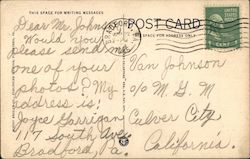 THIS SPACE FOR WRITING MESSAGES
POST CARD
Dear Mr. Johnson,
Would you
please send me
one of your
photos? My
address is:
Joyce Garrigan
117 South Ave.
Bradford, Pa.
BRADFORD
1 CENT 1
Van Johnson
c/o M. G. M.
Culver City
California.